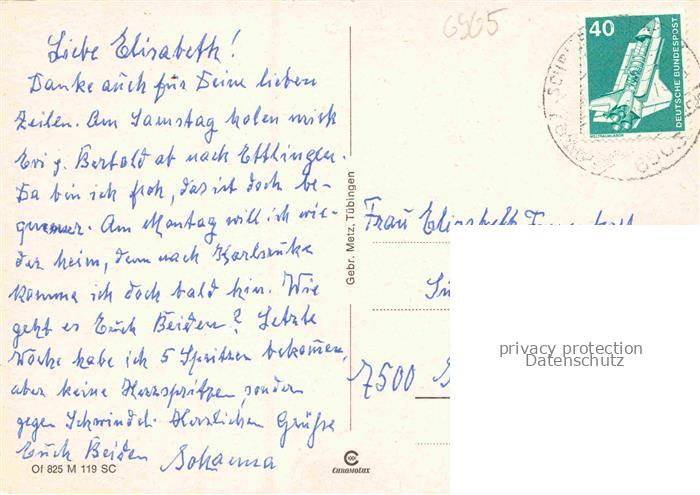 6965
Liebe Elisabeth!
Danke auch für Deine lieben
Zeilen. Am Samstag holen mich
Evi g. Bertold ab nach Ettlingen.
Da bin ich froh, das ist doch be-
quemer. Am Montag will ich wie-
der heim, denn nach Karlsruhe
komme ich doch bald hin. Wie
geht es Euch Beiden? Letzte
Woche habe ich 5 Spritzen bekommen,
aber keine Herzspritzen, sondern
gegen Schwindel. Herzlichen Grüße
Euch Beiden Johanna
Of 825 M 119 SC
Gebr. Metz, Tübingen
CHROMOLUX
40
DEUTSCHE BUNDESPOST
WELTRAUMLABOR
Frau Elisabeth
7500
privacy protection
Datenschutz